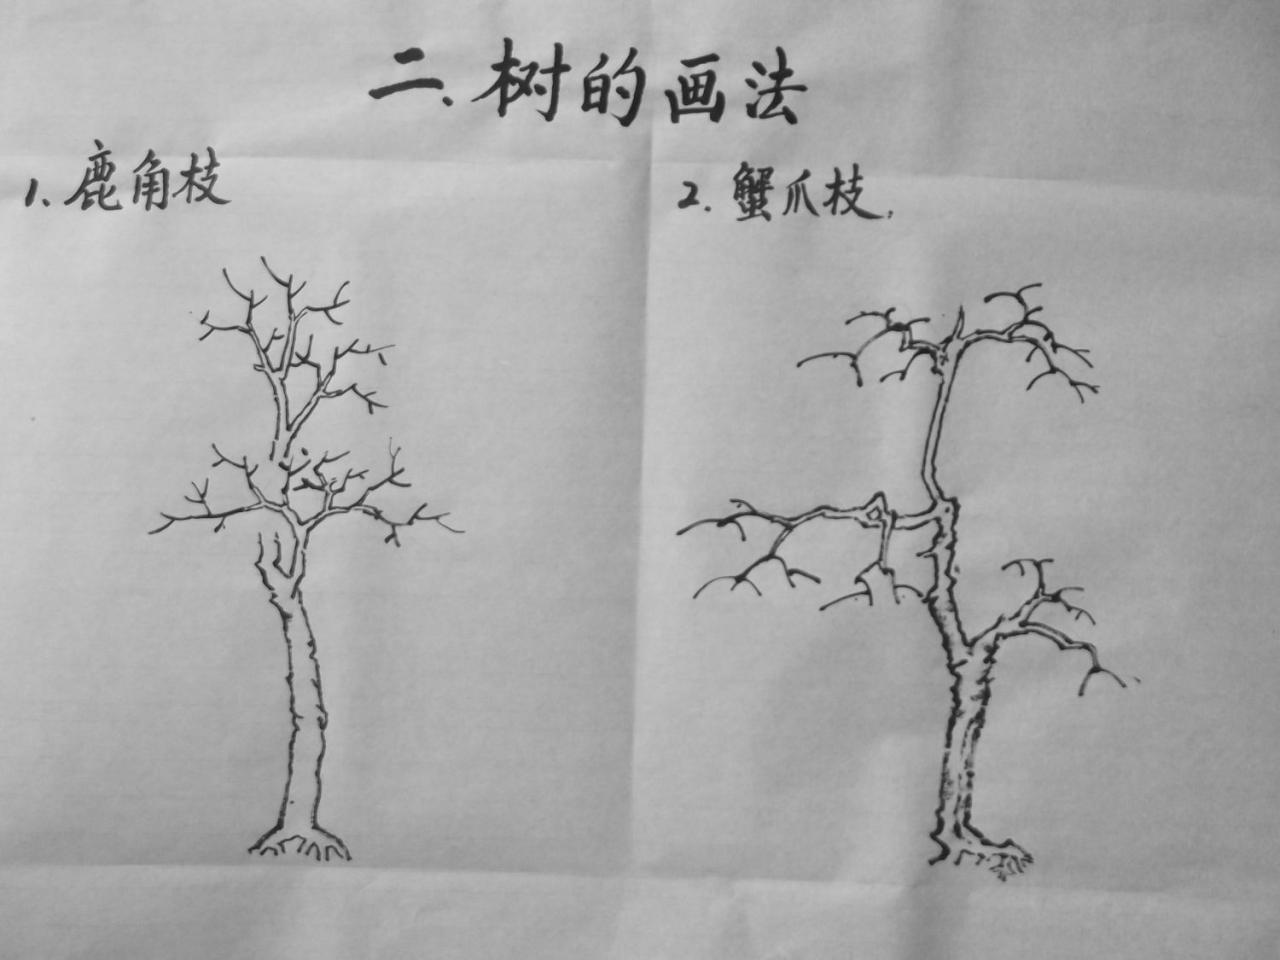 二、树的画法
1、鹿角枝
2.蟹爪枝,